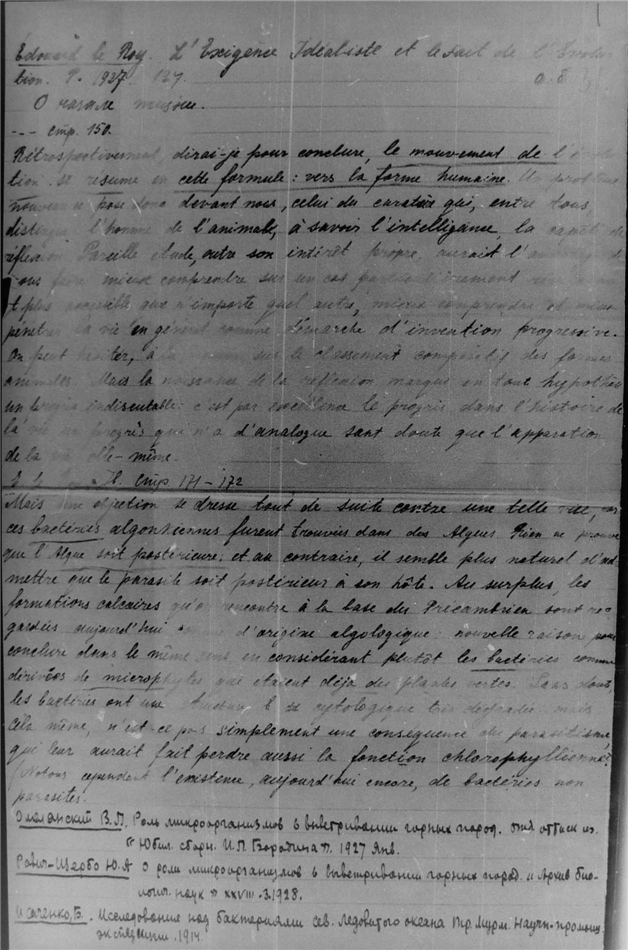 Edouard le Roy. L'Exigence Idéaliste et le fait de l'Evolu
tion. P. 1927. 127.
О начале жизни.
--- стр. 150.
Rétrospectivement, dirai-je pour conclure, le mouvement de l'
tion se résume en cette formule: vers la forme humaine. Un problème
nouveau se pose donc devant nous, celui du caractère qui, entre tous,
distingue l'homme de l'animal, à savoir l'intelligence, la capacité de
réflexion. Pareille étude, outre son intérêt propre, aurait l'avantage de
nous faire mieux comprendre sur un cas particulièrement
et plus accessible que n'importe quel autre, mieux comprendre et mieux
pénétrer la vie en général comme démarche d'invention progressive.
On peut hésiter, à la sur le classement comparatif des formes
animales. Mais la naissance de la réflexion marque en tout hypothèse
un terme indiscutable: c'est par excellence le progrès dans l'histoire de
la vie un progrès qui n'a d'analogue sant doute que l'apparation
de la vie elle-même.
Стр. 171-172
Mais une objection se dresse tout de suite contre une telle vue, car
ces bactéries algonkiennes furent trouvées dans des Algues. Rien ne prouve
que l'Algue soit postérieure; et au contraire, il semble plus naturel d'ad
mettre que le parasite soit postérieur à son hôte. Au surplus, les
formations calcaires qu'on rencontre à la base du Précambrien sont re
gardées aujourd'hui comme d'origine algologique: nouvelle raison pour
conclure dans le même sens en considérant plutôt les bactéries comme
dérivées de microphytes qui étaient déjà des plantes vertes. Sans doute,
les bactéries ont une structure cytologique très dégradée mais
cela même, n'est-ce pas simplement une conséquence du parasitisme,
qui leur aurait fait perdre aussi la fonction chlorophyllienne?
(Notons cependant l'existence, aujourd'hui encore, de bactéries non
parasites.
Омелянский В.Л. Роль микроорганизмов в выветривании горных пород. отд. оттиск из
Юбил. сборн. И.П. Бородина п. 1927 Янв.
Равич-Щербо Ю.А О роли микроорганизмов в выветривании горных пород. "Архив био-
логич. наук" XXVIII-3.1928.
Исаченко, Б. Исследование над бактериями сев. Ледовитого океана Тр. Мурм. Научн-промысл.
экспедиции. 1914.